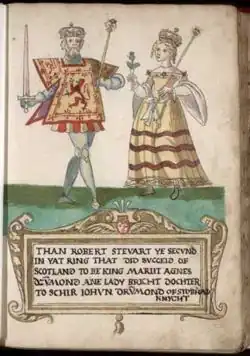 THAN ROBERT STEVART YE SECVND
IN YAT RING THAT DID BVCGILD OF
SCOTLAND TO BE KING MARIIT AGNES
DRVMOND ANE LADY BRICHT DOCHTER
TO SCHIR IOHVN DRVMOND OF
KNYCHT